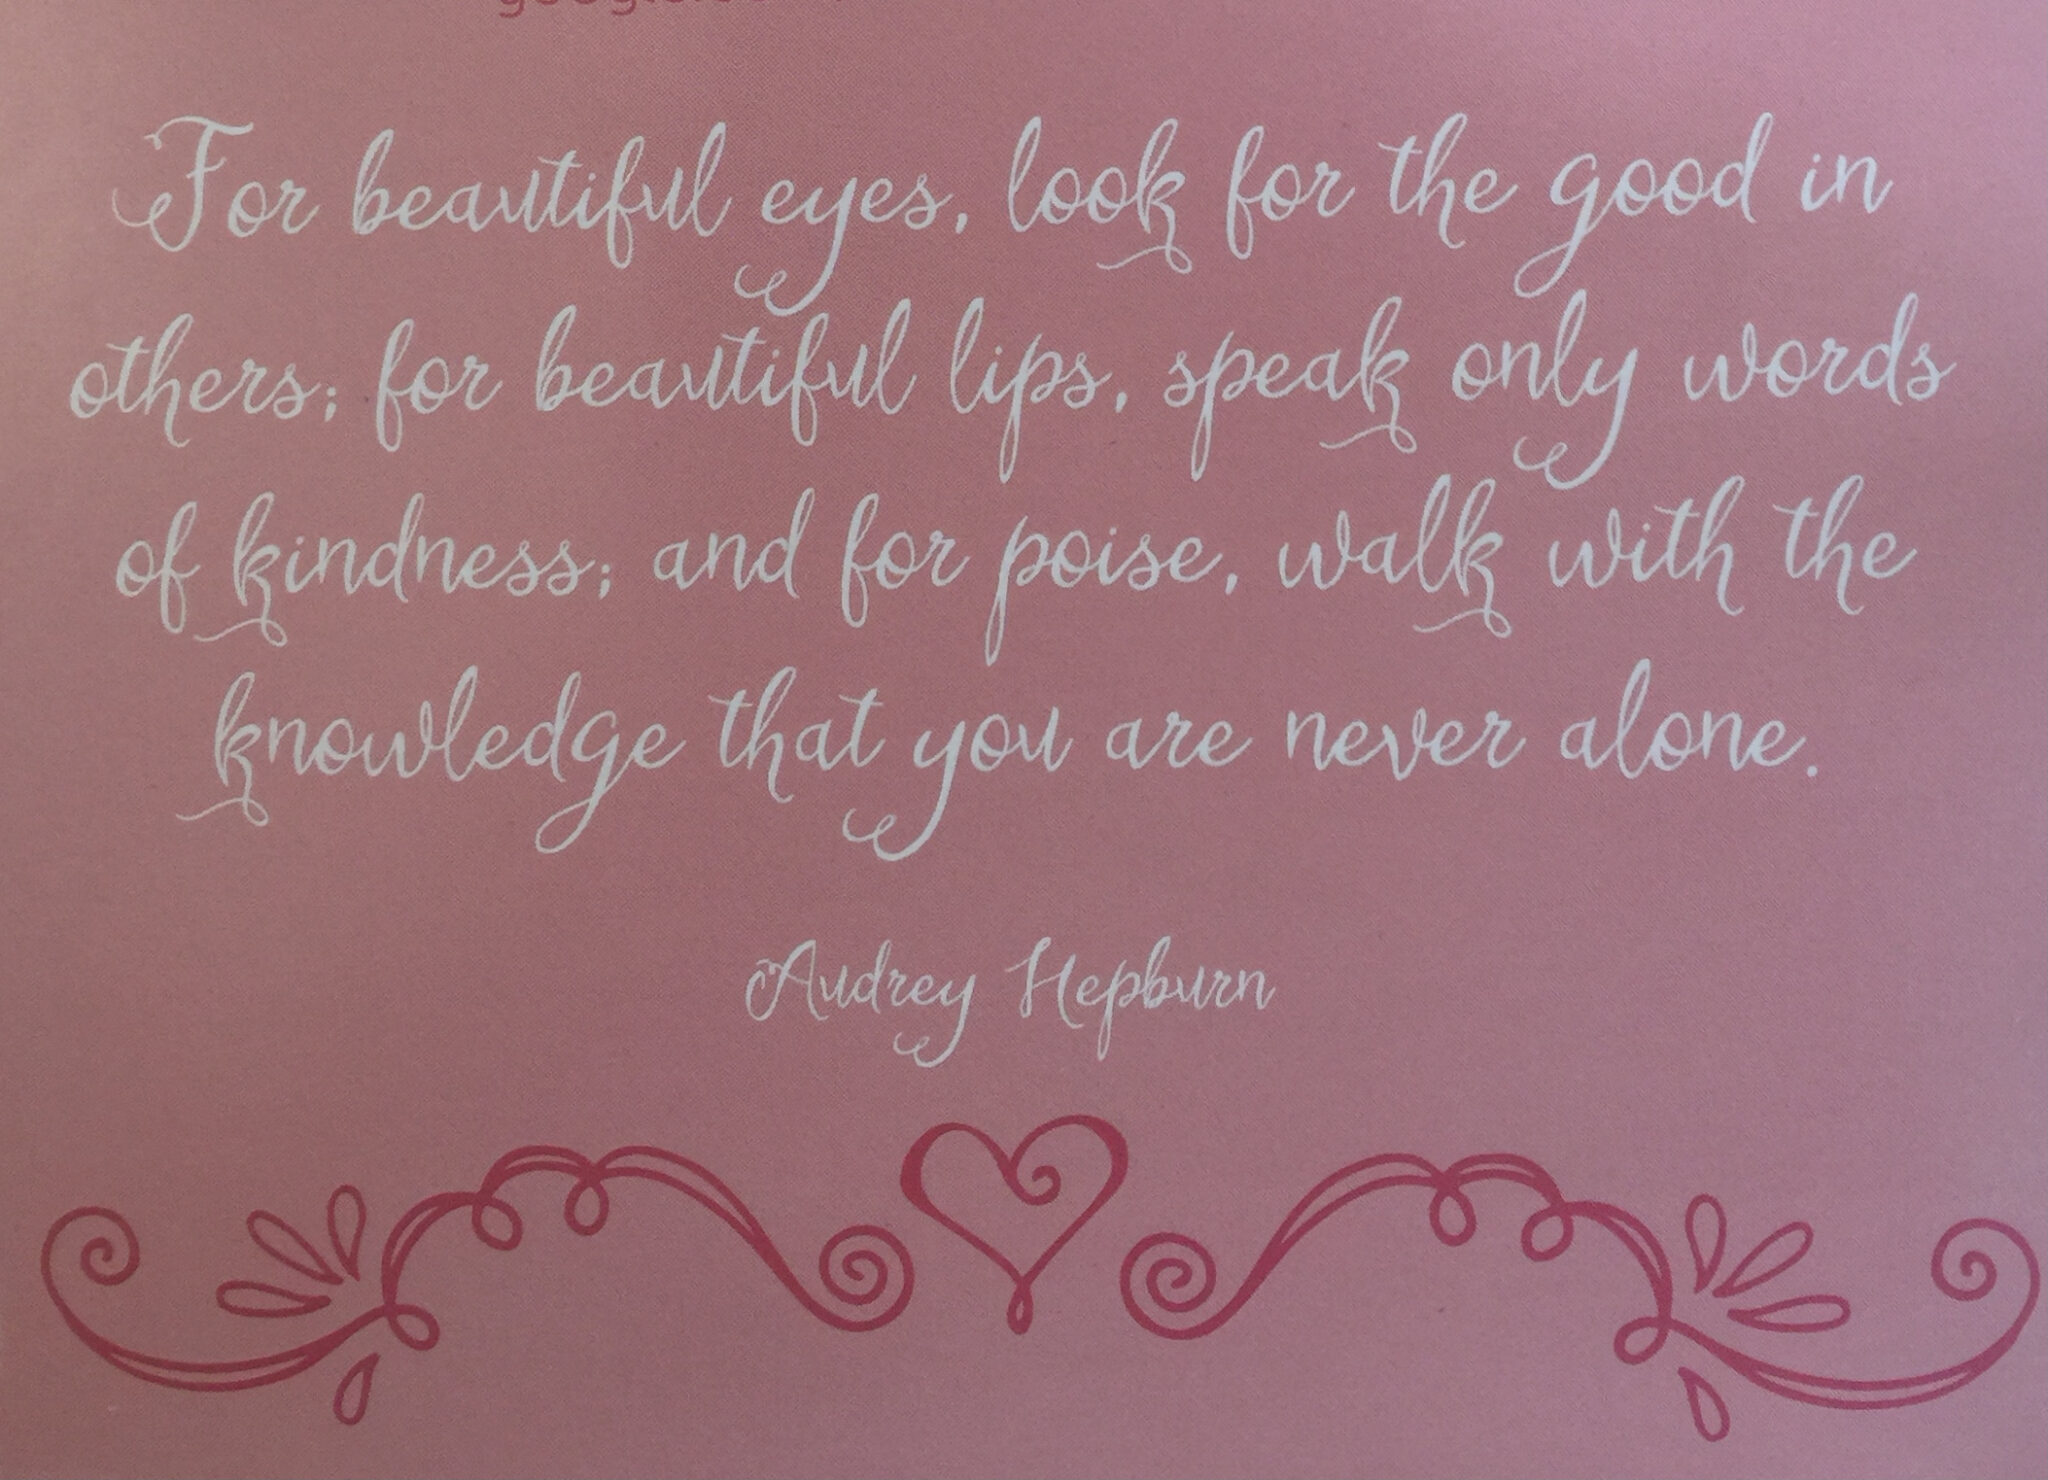 For beautiful eyes, look for the good in
others; for beautiful lips, speak only words
of kindness; and for poise, walk with the
knowledge that you are never alone.
Audrey Hepburn